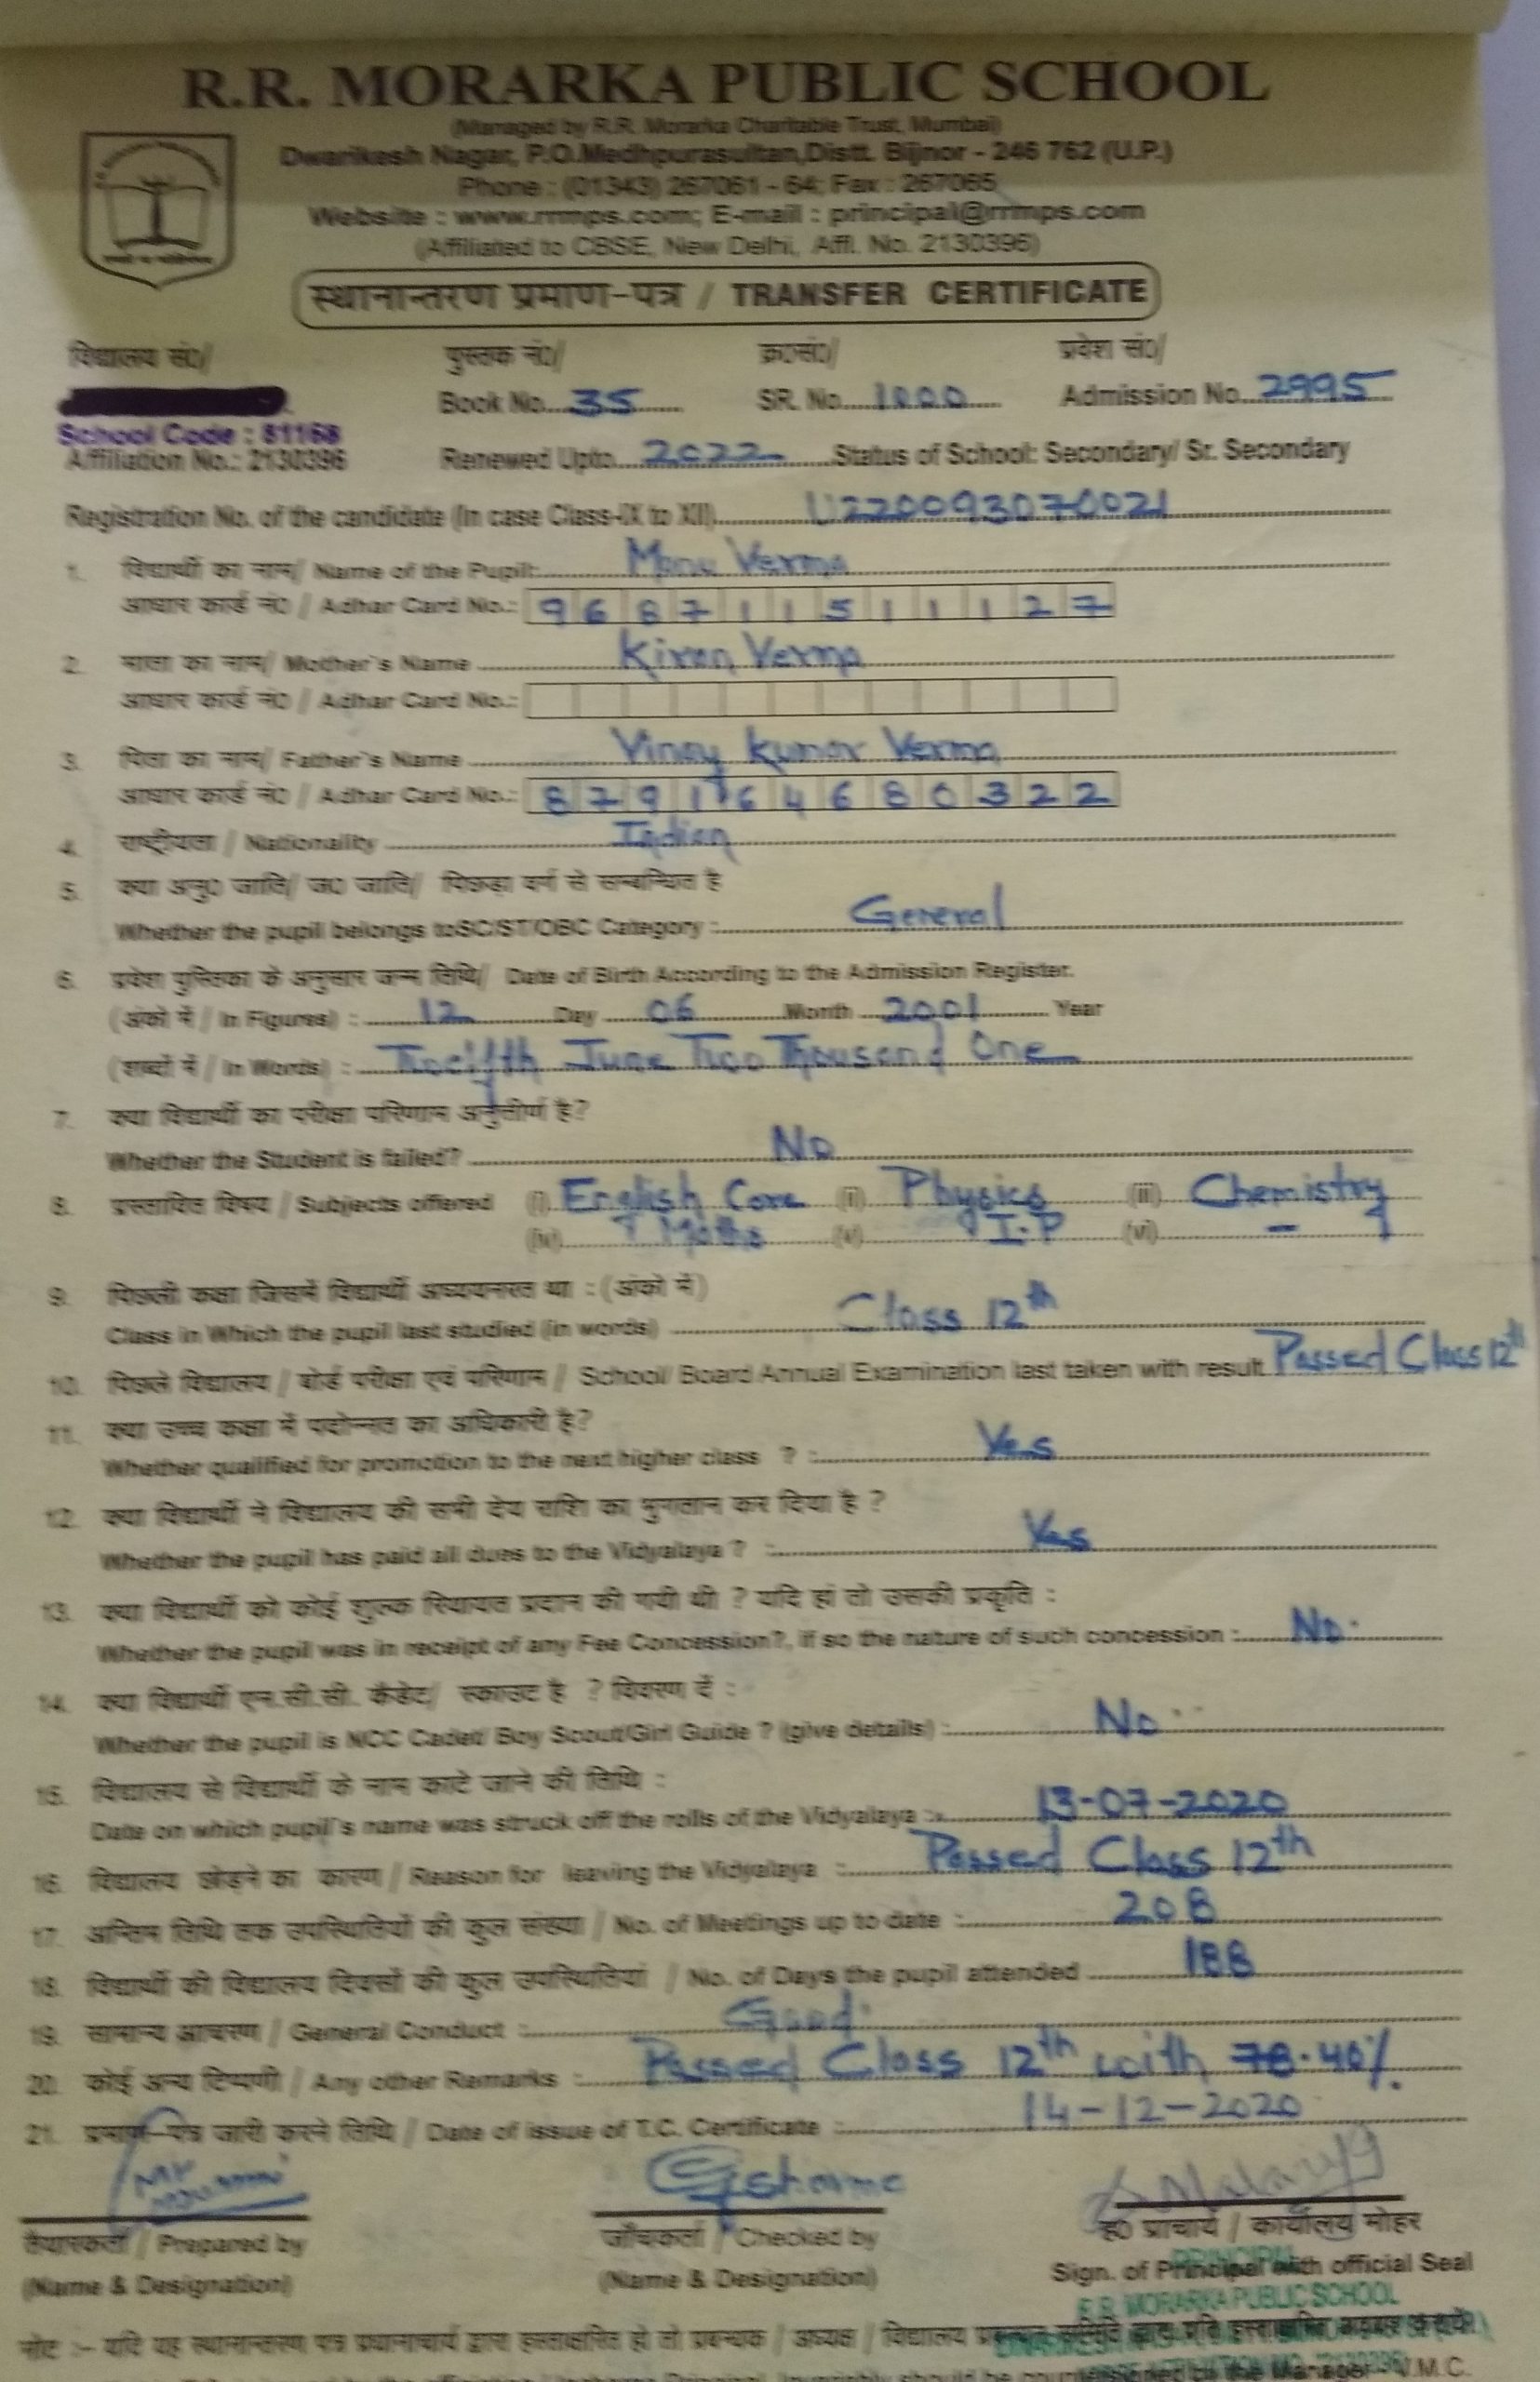 R.R. MORARKA PUBLIC SCHOOL
(Managed by R.R. Morarka Charitable Trust, Mumbai)
Dwarikesh Nagar, P.O.Medhpurasultan,Distt. Bijnor - 246 762 (U.P.)
Phone : (01343) 267061 - 64; Fax : 267065
Website : www.rrmps.com; E-mail : principal@rrmps.com
(Affiliated to CBSE, New Delhi, Affl. No. 2130396)
स्थानान्तरण प्रमाण-पत्र / TRANSFER CERTIFICATE
विद्यालय सं0/ पुस्तक नं0/ क्र0सं0/ प्रवेश सं0/
Book No. 35 SR. No. 1000 Admission No. 2995
School Code : 81168
Affiliation No.: 2130396 Renewed Upto 2022 Status of School: Secondary/ Sr. Secondary
Registration No. of the candidate (In case Class-IX to XII) U220093070021
1. विद्यार्थी का नाम/ Name of the Pupil: Manu Verma
आधार कार्ड नं0 / Adhar Card No.: 9 6 8 7 1 1 5 1 1 1 2 7
2. माता का नाम/ Mother's Name Kiran Verma
आधार कार्ड नं0 / Adhar Card No.:
3. पिता का नाम/ Father's Name Vinay Kumar Verma
आधार कार्ड नं0 / Adhar Card No.: 8 7 9 1 6 4 6 8 0 3 2 2
4. राष्ट्रीयता / Nationality Indian
5. क्या अनु0 जाति/ ज0 जाति/ पिछड़ा वर्ग से सम्बन्धित है
Whether the pupil belongs toSC/ST/OBC Category : General
6. प्रवेश पुस्तिका के अनुसार जन्म तिथि/ Date of Birth According to the Admission Register.
(अंको में / In Figures) : 12 Day 06 Month 2001 Year
(शब्दों में / In Words) : Twelfth June Two Thousand One
7. क्या विद्यार्थी का परीक्षा परिणाम अनुत्तीर्ण है?
Whether the Student is failed? No
8. प्रस्तावित विषय / Subjects offered (i) English Core (ii) Physics (iii) Chemistry
(iv) Maths (v) I.P (vi) -
9. पिछली कक्षा जिसमें विद्यार्थी अध्ययनरत था : (अंको में)
Class in Which the pupil last studied (in words) Class 12th
10. पिछले विद्यालय / बोर्ड परीक्षा एवं परिणाम / School/ Board Annual Examination last taken with result Passed Class 12th
11. क्या उच्च कक्षा में पदोन्नत का अधिकारी है?
Whether qualified for promotion to the next higher class ? : Yes
12. क्या विद्यार्थी ने विद्यालय की सभी देय राशि का भुगतान कर दिया है ?
Whether the pupil has paid all dues to the Vidyalaya ? : Yes
13. क्या विद्यार्थी को कोई शुल्क रियायत प्रदान की गयी थी ? यदि हां तो उसकी प्रकृति :
Whether the pupil was in receipt of any Fee Concession?, if so the nature of such concession : No.
14. क्या विद्यार्थी एन.सी.सी. कैडेट/ स्काउट है ? विवरण दें :
Whether the pupil is NCC Cadet/ Boy Scout/Girl Guide ? (give details) : No
15. विद्यालय से विद्यार्थी के नाम काटे जाने की तिथि :
Date on which pupil's name was struck off the rolls of the Vidyalaya : 13-07-2020
16. विद्यालय छोड़ने का कारण / Reason for leaving the Vidyalaya : Passed Class 12th
17. अन्तिम तिथि तक उपस्थितियों की कुल संख्या / No. of Meetings up to date : 208
18. विद्यार्थी की विद्यालय दिवसों की कुल उपस्थितियां / No. of Days the pupil attended 188
19. सामान्य आचरण / General Conduct : Good
20. कोई अन्य टिप्पणी / Any other Remarks : Passed Class 12th with 78.40%.
21. प्रमाण-पत्र जारी करने तिथि / Date of issue of T.C. Certificate : 14-12-2020
तैयारकर्ता / Prepared by जाँचकर्ता / Checked by ह0 प्राचार्य / कार्यालय मोहर
(Name & Designation) (Name & Designation) Sign. of Principal with official Seal
PRINCIPAL
R.R. MORARKA PUBLIC SCHOOL
नोट :- यदि यह स्थानान्तरण पत्र प्रधानाचार्य द्वारा हस्ताक्षरित हो तो प्रबन्धक / अध्यक्ष / विद्यालय
should be the Manager - V.M.C.